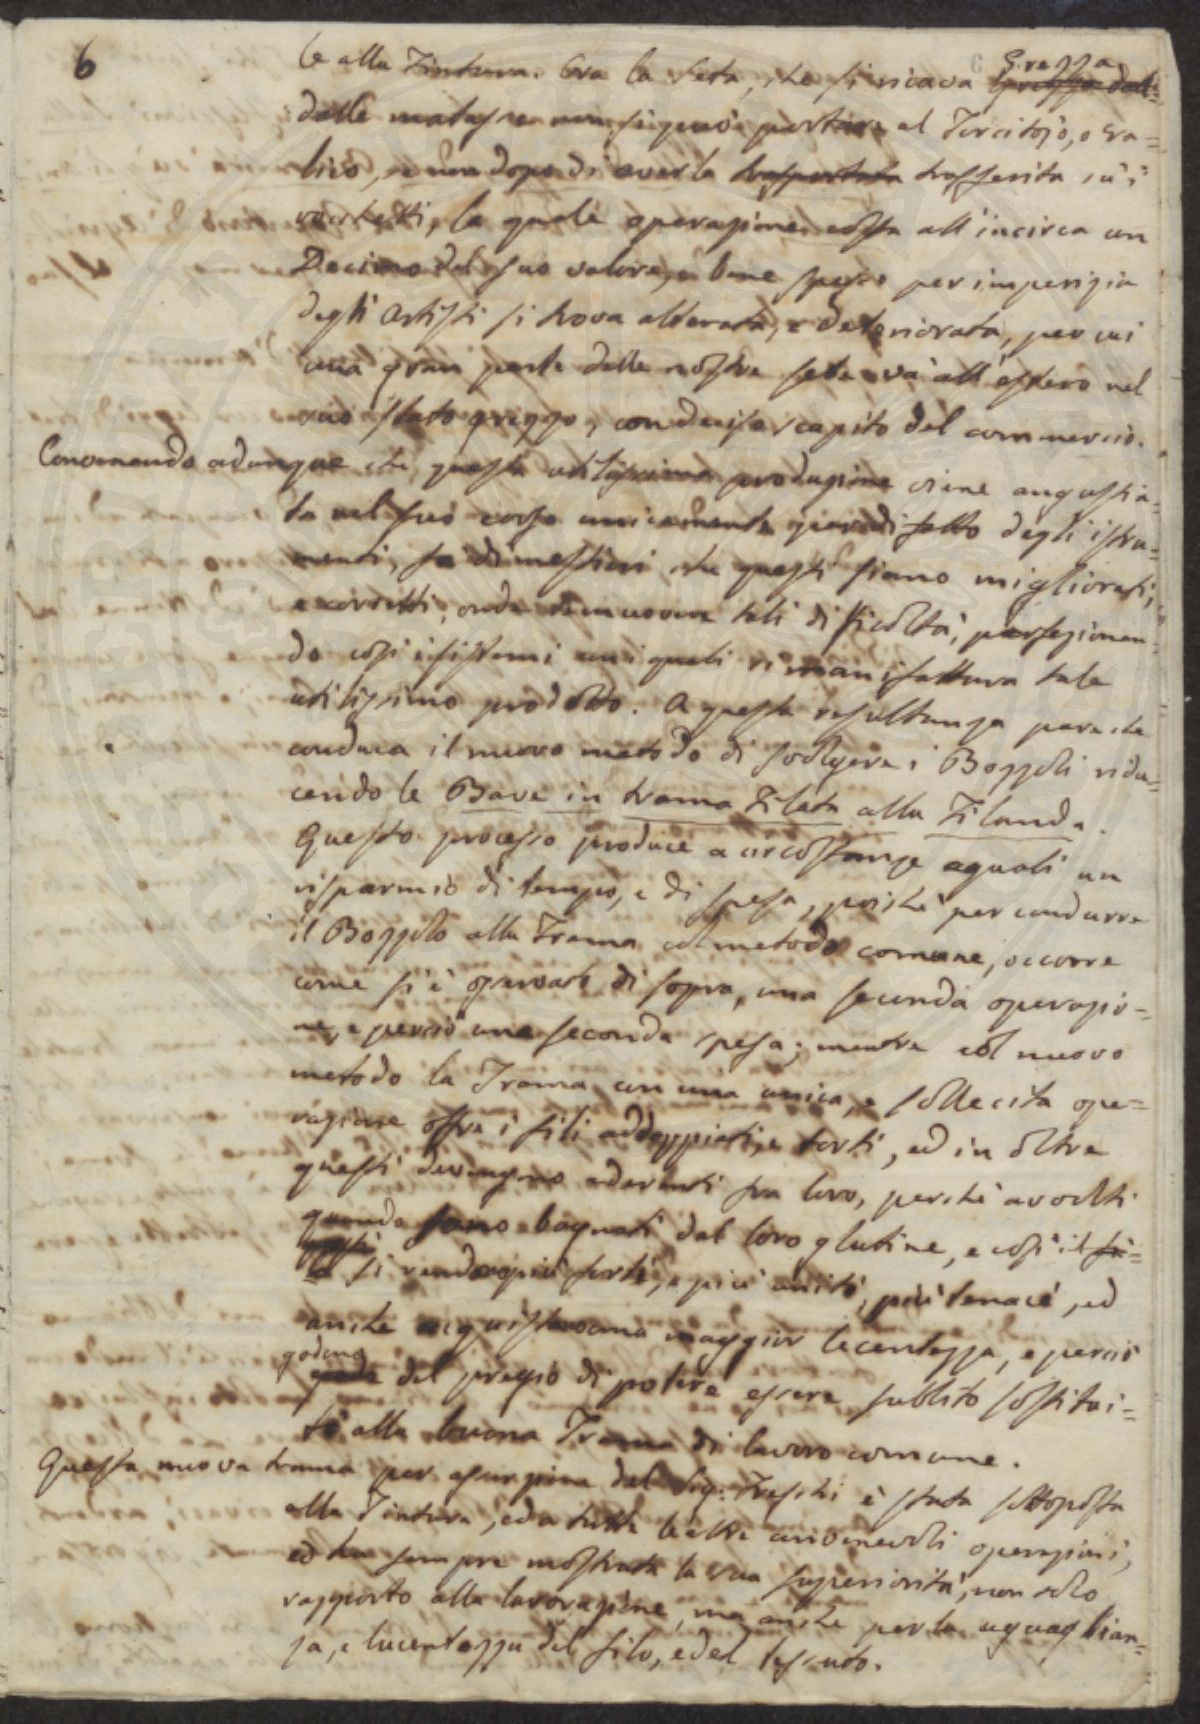 6
le alla Tintura. Ora la seta, che si ricava Grezza
dalle matasse non si può portare al Torcitojo, o Va-
lico, se non dopo di averla trasportata trasferita sù i
rocchetti, la quale operazione costa all'incirca un
Decimo del suo valore, e bene spesso per imperizia
degli Artisti si trova alterata, e deteriorata, per cui
una gran parte delle nostre sete và all'estero nel
suo stato grezzo, con decisa scapito del commercio.
Convenendo adunque che questa utilissima produzione viene angustia-
ta nel suo corso unicamente per difetto degli istru-
menti, fa di mestieri che questi siano migliorati,
e corretti, onde rimuovere tali difficoltà, perfezionan-
do così i sistemi coi quali si manifattura tale
utilissimo prodotto. A questa resultanza pare che
conduca il nuovo metodo di svolgere i Bozzoli ridu-
cendo le Bave in trama Filata alla Filanda.
Questo processo produce a circostanze eguali un
risparmio di tempo, e di spesa, poichè per condurre
il Bozzolo alla Trama col metodo comune, occorre
come si è osservato di sopra, una seconda operazio-
ne, e perciò una seconda spesa; mentre col nuovo
metodo la Trama con una unica, e sollecita ope-
razione offre i fili addoppiati, e torti, ed in oltre
questi divengono aderenti fra loro, perchè avvolti
quando sono bagnati dal loro glutine, e così il fi-
lo si rendo più forte, e più unito, più tenace, ed
anche acquisteranno maggior lucentezza, e perciò
godono
gode del pregio di potere essere subbito sostitui-
to alla buona Trama di lavoro comune.
Questa nuova trama per assunzione del Sig. Freschi è stata sottoposta
alla Tintura, ed a tutte le altre convenevoli operazioni,
ed ha sempre mostrata la sua superiorità, non solo
rapporto alla lavorazione, ma anche per la uguaglian-
za, e lucentezza del filo, e del tessuto.